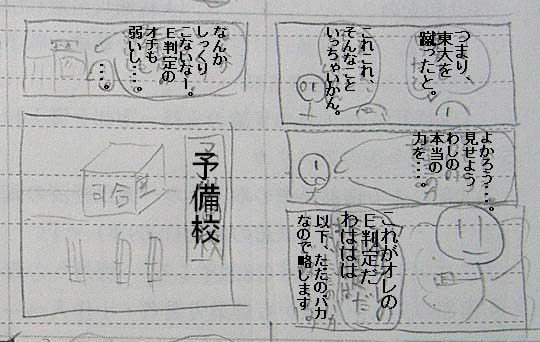 つまり、
東大を
蹴ったと。
これこれ、
そんなこと
いっちゃいかん。
よかろう・・・。
見せよう
わしの
本当の
力を・・・。
これがオレの
E判定だ
わははは
以下、ただのバカ
なので略します
なんか
しっくり
こないなー。
E判定の
オチも
弱いし・・・。
・・・。
予備校